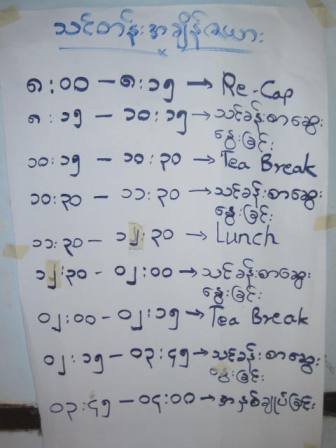 သင်တန်းအချိန်ဇယား
၈:၀၀ – ၈:၁၅ → Re-Cap
၈:၁၅ – ၁၀:၁၅ → သင်ခန်းစာဆွေး
နွေးခြင်း
၁၀:၁၅ – ၁၀:၃၀ → Tea Break
၁၀:၃၀ – ၁၁:၃၀ → သင်ခန်းစာဆွေး
နွေးခြင်း
၁၁:၃၀ – ၁၂:၃၀ → Lunch
၁၂:၃၀ – ၀၂:၀၀ → သင်ခန်းစာဆွေး
နွေးခြင်း
၀၂:၀၀ – ၀၂:၁၅ → Tea Break
၀၂:၁၅ – ၀၃:၄၅ → သင်ခန်းစာဆွေး
နွေးခြင်း
၀၃:၄၅ – ၀၄:၀၀ → အနှစ်ချုပ်ခြင်း